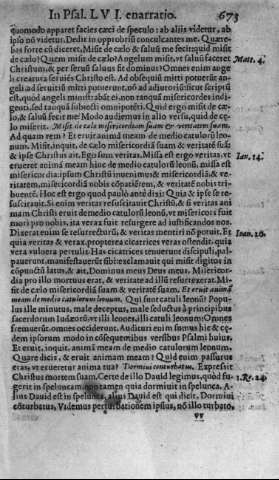 In Psal. LVI. enarratio. 673
quomodo apparet facies cæci de speculo: ab aliis videtur, ab
ipso nō videtur. Dedit in opprobriū conculcantes me. Quære-
bas forte cū diceret, Misit de cælo & saluū me fecit: quid misit
de cælo? Quem misit de cælo? Angelum misit, vt saluū faceret
Christum, & per seruū saluus fit dominus? Omnes enim ange
li creatura seruiēs Christo est. Ad obsequiū mitti potuerūt an-
geli ad seruitiū mitti potuerunt, nō ad adiutoriū: sicut scriptū
est, quòd angeli ministrabāt ei, non tanquā misericordes indi-
genti, sed tanquā subiecti omnipotēti. Quid ergo misit de cæ-
lo, & saluū fecit me? Modo audiemus in alio versu, quid de cę
lo miserit. Misit de cælo misericordiam suam & veritatem suam.
Ad quam rem? Et eruit animā meam de medio catulorū leo-
num. Misit, inquit, de cælo misericordiā suam & veritatē suā:
& ipse Christus ait, Ego sum veritas. Missa est ergo veritas, vt
erueret animā meam hinc de medio catulorū leonū, missa est
misericordia: ipsum Christū inuenimus & misericordiā & ve-
ritatem, misericordiā nobis cōpatiēns, & veritatē nobis tri-
buentē. Hoc est ergo quod paulò antè dixi: Quia & ipse se re-
suscitauit. Si enim veritas resuscitauit Christū, & si veritas ani
mam Christi eruit de medio catulorū leonū, vt misericors fuit
mori pro nobis, ita verax fuit resurgere ad iustificandos nos.
Dixerat enim se resurrecturū, & veritas mentiri nō potuit. Et
quia veritas & verax, propterea cicatrices veras ostendit, quia
vera vulnera pertulit. Has cicatrices tenuerunt discipuli, pal-
pauerunt, manifestauerūt sibi: exclamauit qui misit digitos in
cōpunctū latus, & ait, Dominus meus Deus meus. Misericor-
dia pro illo mortuus erat, & veritate ad illū resurrexerat. Mi-
sit de cælo misericordiam suam & veritatē suam. Et eruit animā
meam de medio catulorum leonum. Qui sunt catuli leonū? Popu-
lus ille minutus, malè deceptus, malè seductus à principibus
sacerdotum Iudæorū: vt illi leones, illi catuli leonum: Omnes
fremuerūt, omnes occiderunt. Audituri enim sumus hîc & cę-
dem ipsorum modo in cōsequentibus versibus Psalmi huius.
Et eruit, inquit, animā meam de medio catulorum leonum.
Quare dicit, & eruit animam meam? Quid enim passurus
eras, vt erueretur anima tua? Dormiui conturbatus. Expressit
Christus mortem suam. Certè de illo Dauid legimus, quod fu-
gerit in speluncam, non tamen quia dormiuit in spelunca. A-
lius Dauid est in spelunca, alius Dauid est qui dicit, Dormiui
cōturbatus. Videmus perturbationem ipsius, nō illo turbato,
Matt. 4.
Ioa. 14.
Ioan. 20.
1. Re. 24.